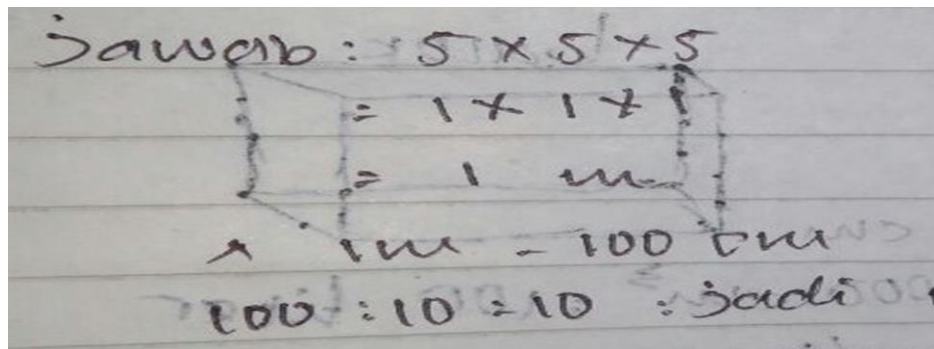 Jawab : 5 x 5 x 5
= 1 x 1 x 1
= 1 m
1m = 100 cm
100 : 10 = 10 : jadi